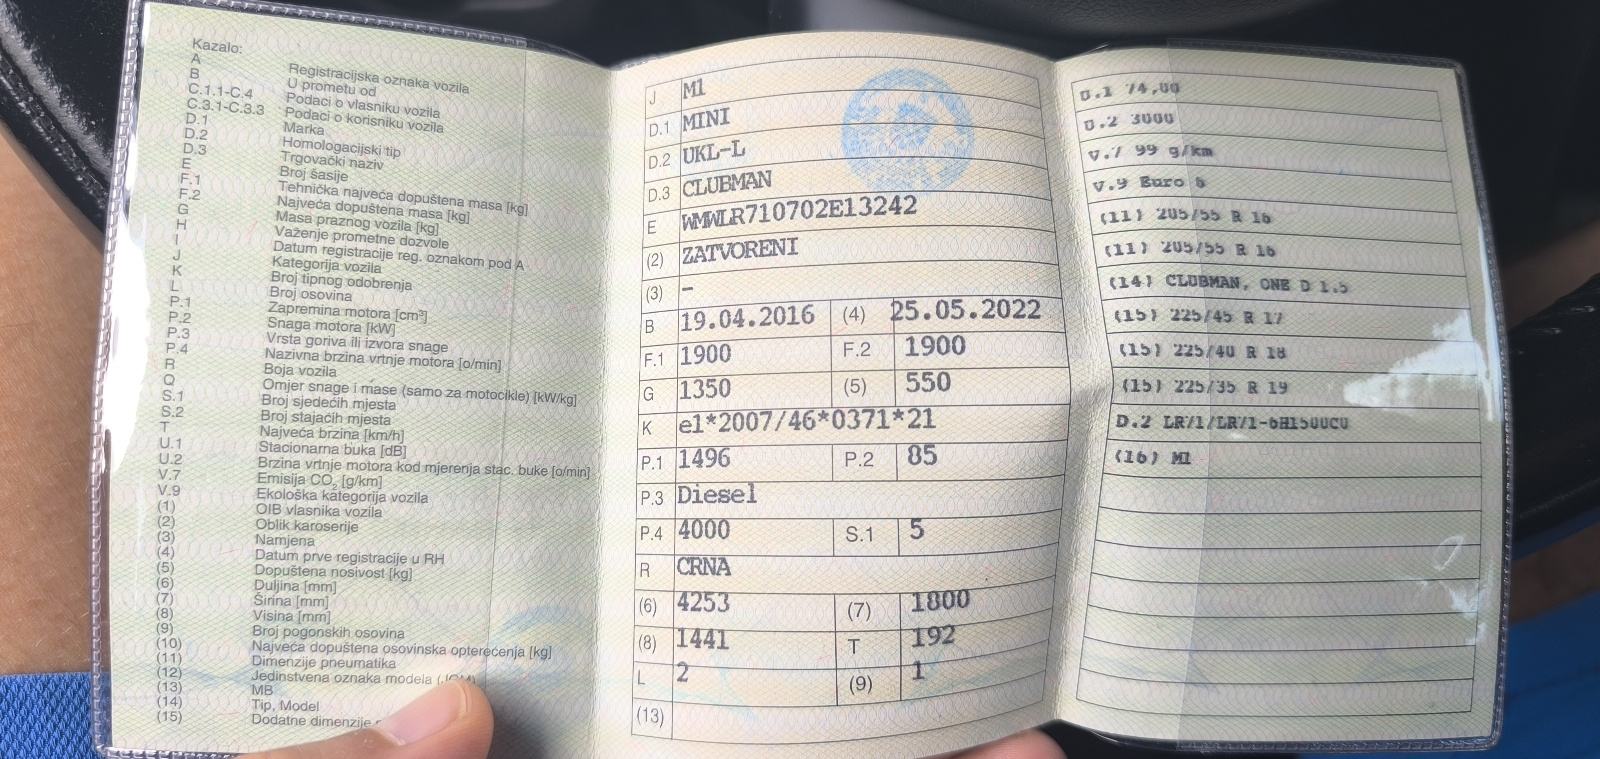 Kazalo:
A Registracijska oznaka vozila
B U prometu od
C.1.1-C.4 Podaci o vlasniku vozila
C.3.1-C.3.3 Podaci o korisniku vozila
D.1 Marka
D.2 Homologacijski tip
D.3 Trgovački naziv
E Broj šasije
F.1 Tehnička najveća dopuštena masa [kg]
F.2 Najveća dopuštena masa [kg]
G Masa praznog vozila [kg]
H Važenje prometne dozvole
I Datum registracije reg. oznakom pod A
J Kategorija vozila
K Broj tipnog odobrenja
L Broj osovina
P.1 Zapremina motora [cm³]
P.2 Snaga motora [kW]
P.3 Vrsta goriva ili izvora snage
P.4 Nazivna brzina vrtnje motora [o/min]
R Boja vozila
Q Omjer snage i mase (samo za motocikle) [kW/kg]
S.1 Broj sjedećih mjesta
S.2 Broj stajaćih mjesta
T Najveća brzina [km/h]
U.1 Stacionarna buka [dB]
U.2 Brzina vrtnje motora kod mjerenja stac. buke [o/min]
V.7 Emisija CO₂ [g/km]
V.9 Ekološka kategorija vozila
(1) OIB vlasnika vozila
(2) Oblik karoserije
(3) Namjena
(4) Datum prve registracije u RH
(5) Dopuštena nosivost [kg]
(6) Duljina [mm]
(7) Širina [mm]
(8) Visina [mm]
(9) Broj pogonskih osovina
(10) Najveća dopuštena osovinska opterećenja [kg]
(11) Dimenzije pneumatika
(12) Jedinstvena oznaka modela
(13) MB
(14) Tip, Model
(15) Dodatne dimenzije
J M1
D.1 MINI
D.2 UKL-L
D.3 CLUBMAN
E WMWLR710702E13242
(2) ZATVORENI
(3) –
B 19.04.2016 (4) 25.05.2022
F.1 1900 F.2 1900
G 1350 (5) 550
K e1*2007/46*0371*21
P.1 1496 P.2 85
P.3 Diesel
P.4 4000 S.1 5
R CRNA
(6) 4253 (7) 1800
(8) 1441 T 192
L 2 (9) 1
(13)
U.1 74,00
U.2 3000
V.7 99 g/km
V.9 Euro 6
(11) 205/55 R 16
(11) 205/55 R 16
(14) CLUBMAN, ONE D 1.5
(15) 225/45 R 17
(15) 225/40 R 18
(15) 225/35 R 19
D.2 LR71/LR71-6H1500CU
(16) M1